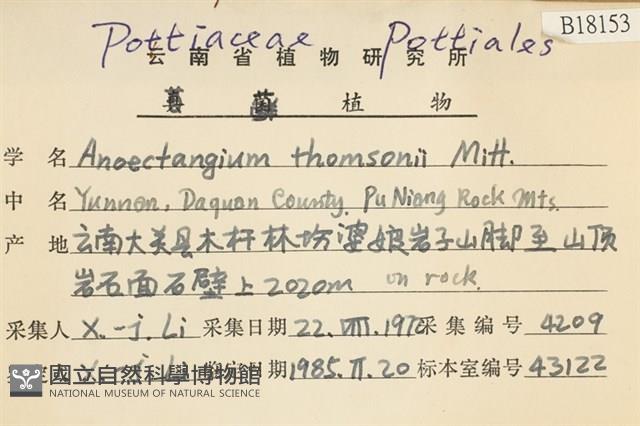 B18153
Pottiaceae Pottiales
云南省植物研究所
植物
学名 Anoectangium thomsonii Mitt.
中名 Yunnan, Daquan County, Pu Niang Rock Mts.
产地 云南大关县木杆林场婆娘岩子山脚至山顶
岩石面石壁上 2020m on rock.
采集人 X.-j. Li 采集日期 22.VIII.197 采集编号 4209
X.-j. Li 鉴定日期 1985.II.20 标本室编号 43122
國立自然科學博物館
NATIONAL MUSEUM OF NATURAL SCIENCE